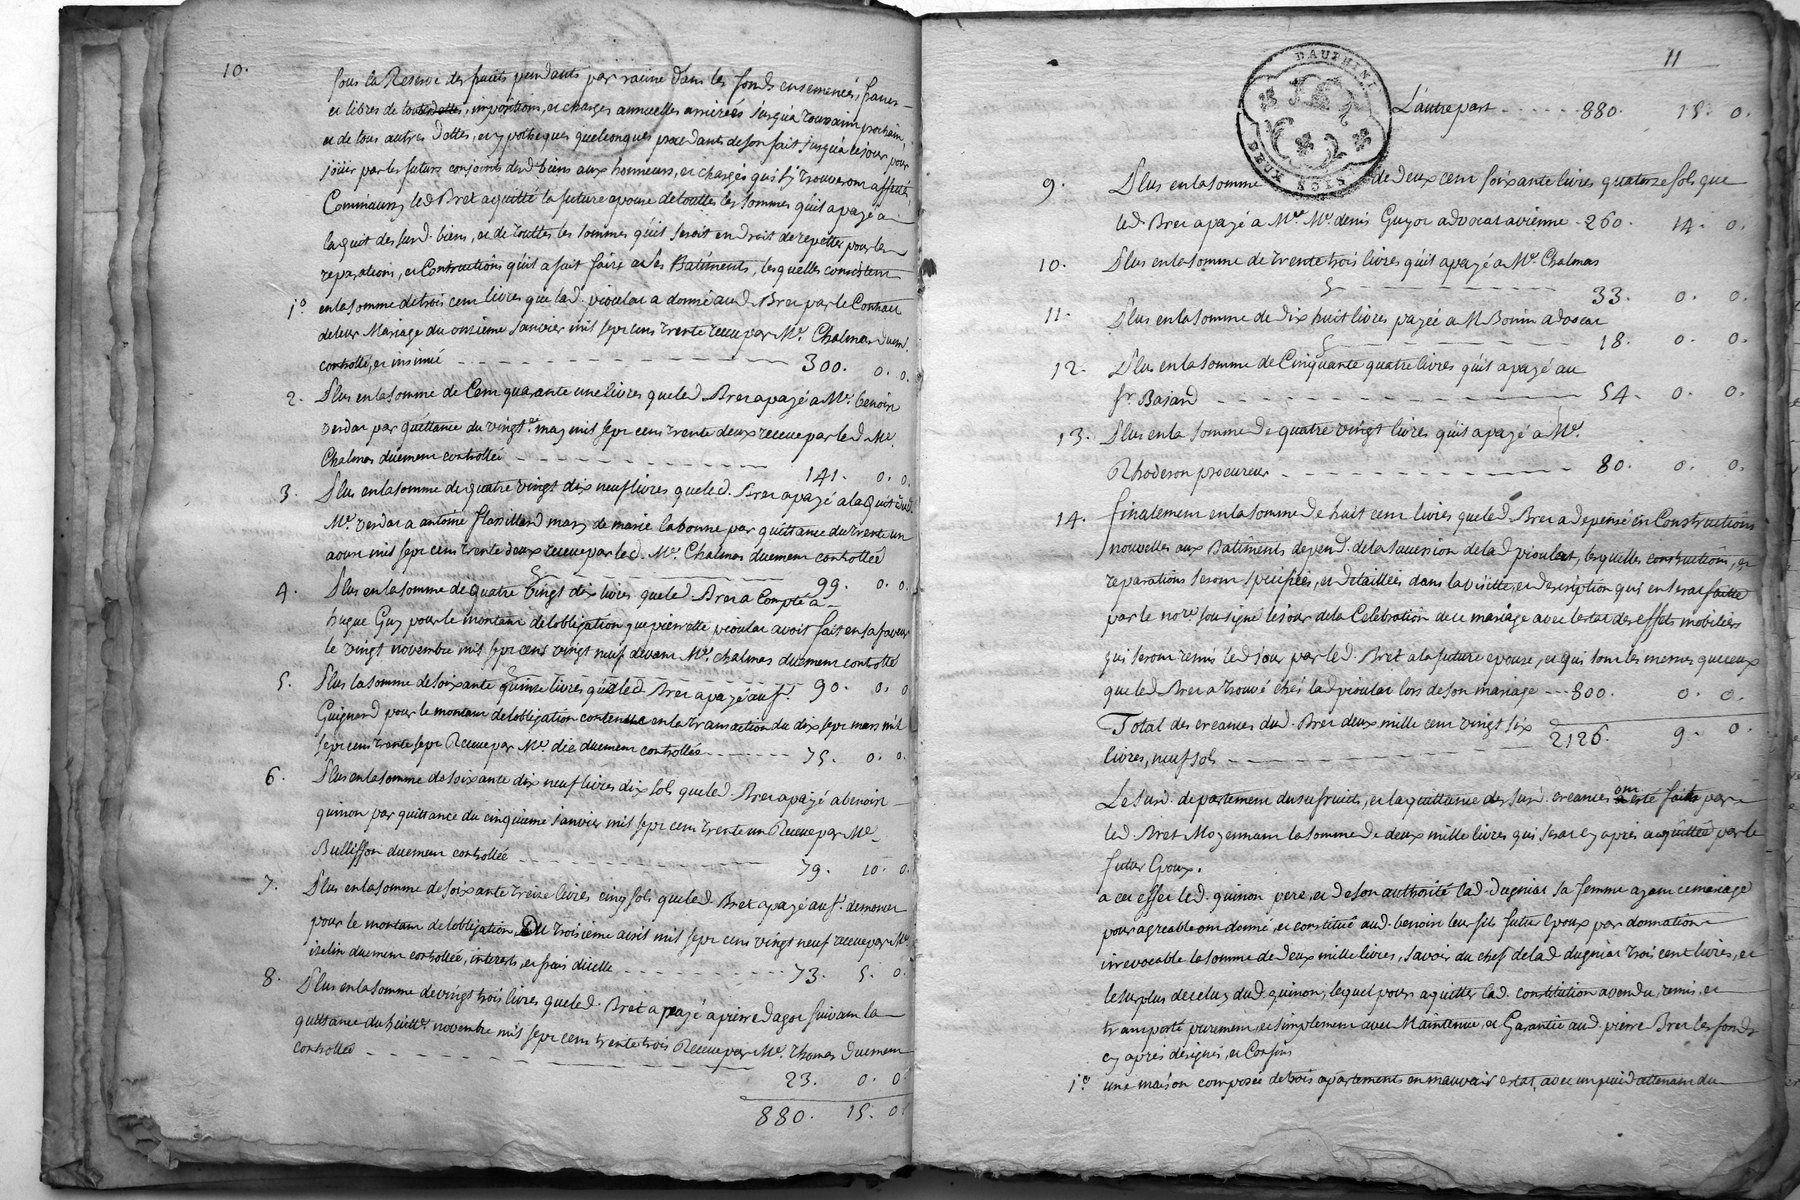 10.
sous la Reserve des fruits pendants par racine dans les fonds ensemencés, francs
et libres de toutes dettes, impositions, et charges annuelles arrivées jusqu'a toussain prochain,
et de tous autres dettes, et ypotheques quelconques procedants de son fait jusqu'a ce jour pour
jouir par les futurs conjoints desd. biens aux honneurs, et charges qui s'y trouveront affectés,
led Bret a quitté la future epouse de touttes les sommes qu'il a payé a
laquit des susd. biens, et de touttes les sommes qu'il seroit en droit de repetter pour les
reparations, et Contructions qu'il a fait faire a les Batiments, lesquelles consistent
1° en la somme de trois cent livres que lad. pioulat a donné aud. Bret par le Contract
de leur Mariage du onzieme janvier mil sept cens trente receu par Me. Chalmas duem.
controllé, et insinué 300. 0. 0.
2. Plus en la somme de Cent quarante une livres que led. Bret a payé a Me. benoit
verdat par quittance du vingt e. may mil sept cens trente deux receue par led. Me.
Chalmas duement controllée 141. 0. 0.
3. Plus en la somme de quatre vingt dix neuf livres que led. Bret a payé a laquit dud.
Me. verdat a antoine flavillard mary de marie labonne par quittance du trente un
aout mil sept cens trente deux receue par led. Me. Chalmas duement controllée
99. 0. 0.
4. Plus en la somme de quatre vingt dix livres que led. Bret a Compté a
hugue Guy pour le montant de lobligation que pierrette pioulat avoit fait en sa faveur
le vingt novembre mil sept cens vingt neuf devant Me. chalmas duement controllé
90. 0. 0
5. Plus la somme de soixante quinze livres que led. Bret a payé au sr.
Guignard pour le montant de lobligation contenue en la transaction du dix sept mars mil
sept cens trente sept Receue par Me. dié duement controllée 75. 0. 0.
6. Plus en la somme de soixante dix neuf livres dix sols que led. Bret a payé a benoit
quinon par quittance du cinquieme janvier mil sept cens trente un Receue par Me.
Bullisson duement controllée 79. 10. 0.
7. Plus en la somme de soixante treize livres cinq sols que led. Bret a payé au sr. demoner
pour le montant de lobligation, Du troisieme avril mil sept cens vingt neuf receue par Me.
iselin duement controllée, interets, et frais dicelle 73. 5. 0.
8. Plus en la somme de vingt trois livres que led. Bret a payé a pierre dagot suivant la
quittance du huitte. novembre mil sept cens trente trois Receue par Me. thomas duement
controllée
23. 0. 0
880. 15. 0
11
DAUPHINE
DEUX SIOLS
L'autre part 880. 15. 0.
9. Plus en la somme de deux cent soixante livres quatorze sols que
led. Bret a payé a Me. Me. denis Guyot advocat a vienne 260. 14. 0.
10. Plus en la somme de trente trois livres qu'il a payé a Me. Chalmas
33. 0. 0.
11. Plus en la somme de dix huit livres payée a M Bonin advocat
18. 0. 0.
12. Plus en la somme de Cinquante quatre livres qu'il a payé au
sr. Bajard 54. 0. 0.
13. Plus en la somme de quatre vingt livres qu'il a payé a Me.
Rhoderon procureur 80. 0. 0.
14. finalement en la somme de huit cent livres que led Bret a depensé en Constructions
nouvelles aux Batiments depend. de la succession de lad pioulat, lesquelles constructions, et
reparations seront spécifiées, et detaillées dans la visitte, et description qui en serat faitte
par le nore. soussigné le jour de la Celebration de ce mariage avec l'estat des effets mobiliers
qui seront remis led jour par led. Bret a la future epouse, et qui sont les memes que ceux
que led Bret a trouvé chés lad pioulat lors de son mariage 800. 0. 0.
Total des creances dud. Bret deux mille cent vingt six
livres, neuf sols 2126. 9. 0.
Le susd. departement dusufruits, et la quittance des susd. creances ont esté faits par
led. Bret Moyennant la somme de deux mille livres qui serat cy après acquittée par le
futur Epoux.
a cet effet led. quinon pere, et de son authorité lad. dugniat sa femme ayant ce mariage
pour agreable ont donné, et constitué aud. benoit leur fils futur epoux par donnation
irrevocable la somme de deux mille livres, savoir du chef de lad dugniat trois cent livres, et
le surplus de celuy dud quinon, lequel pour aquitter lad. constitution a vendu, remis, et
transporté purement, et simplement avec Maintenue, et Garantie aud. pierre Bret les fonds
cy après désignés, et Confins
1° une maison composée de trois apartements en mauvais estat, avec un peu d'attenant du